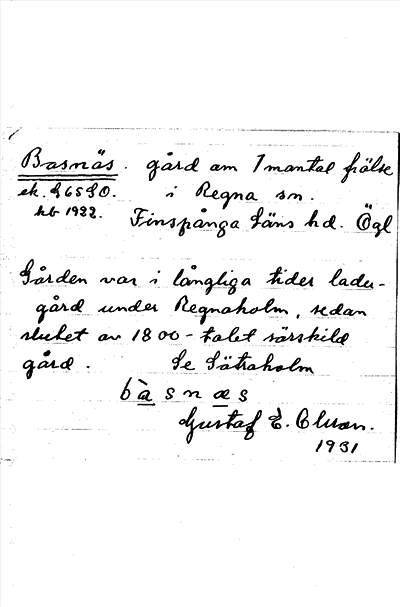 Basnäs. gård om 1 mantal frälse
ek. 865 SO. i Regna sn.
kb 1922. Finspånga läns hd. Ögl
Gården var i långliga tider ladu-
gård under Regnaholm, sedan
slutet av 1800-talet särskild
gård. Se Sätraholm
bàsnæs
Gustaf E. Olsson.
1931